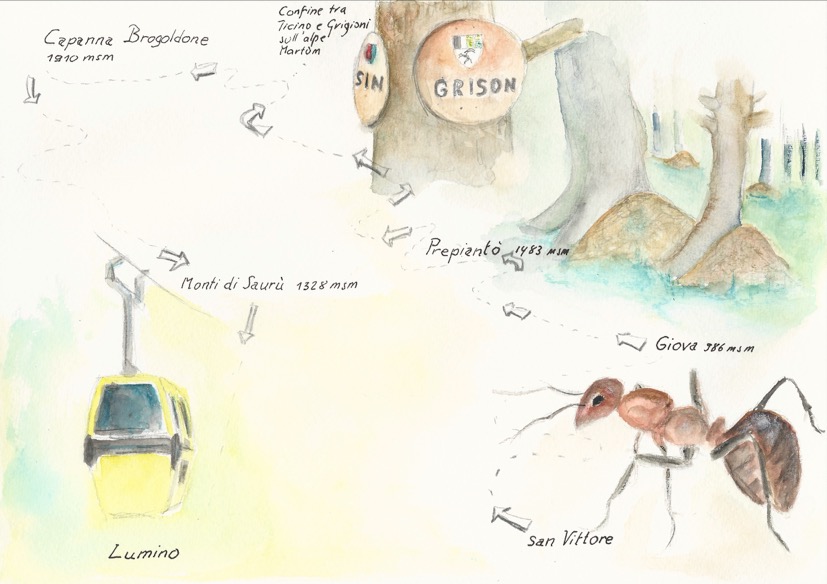 Capanna Brogoldone
1910 msm
Confine tra
Ticino e Grigioni
sull'alpe
Martùm
SIN
GRISON
Prepiantò 1483 msm
Monti di Saurù 1328 msm
Giova 986 msm
San Vittore
Lumino